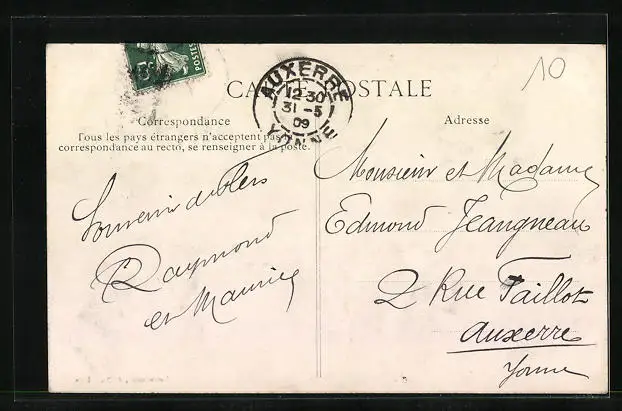 10
POSTES
CARTE POSTALE
AUXERRE
12-30
31 -5
09
YONNE
Correspondance
Tous les pays étrangers n'acceptent pas la
correspondance au recto, se renseigner à la poste.
Souvenir de
Raymond
et Maurice
Adresse
Monsieur et Madame
Edmond Jeangneau
2 Rue Taillot
Auxerre
Yonne